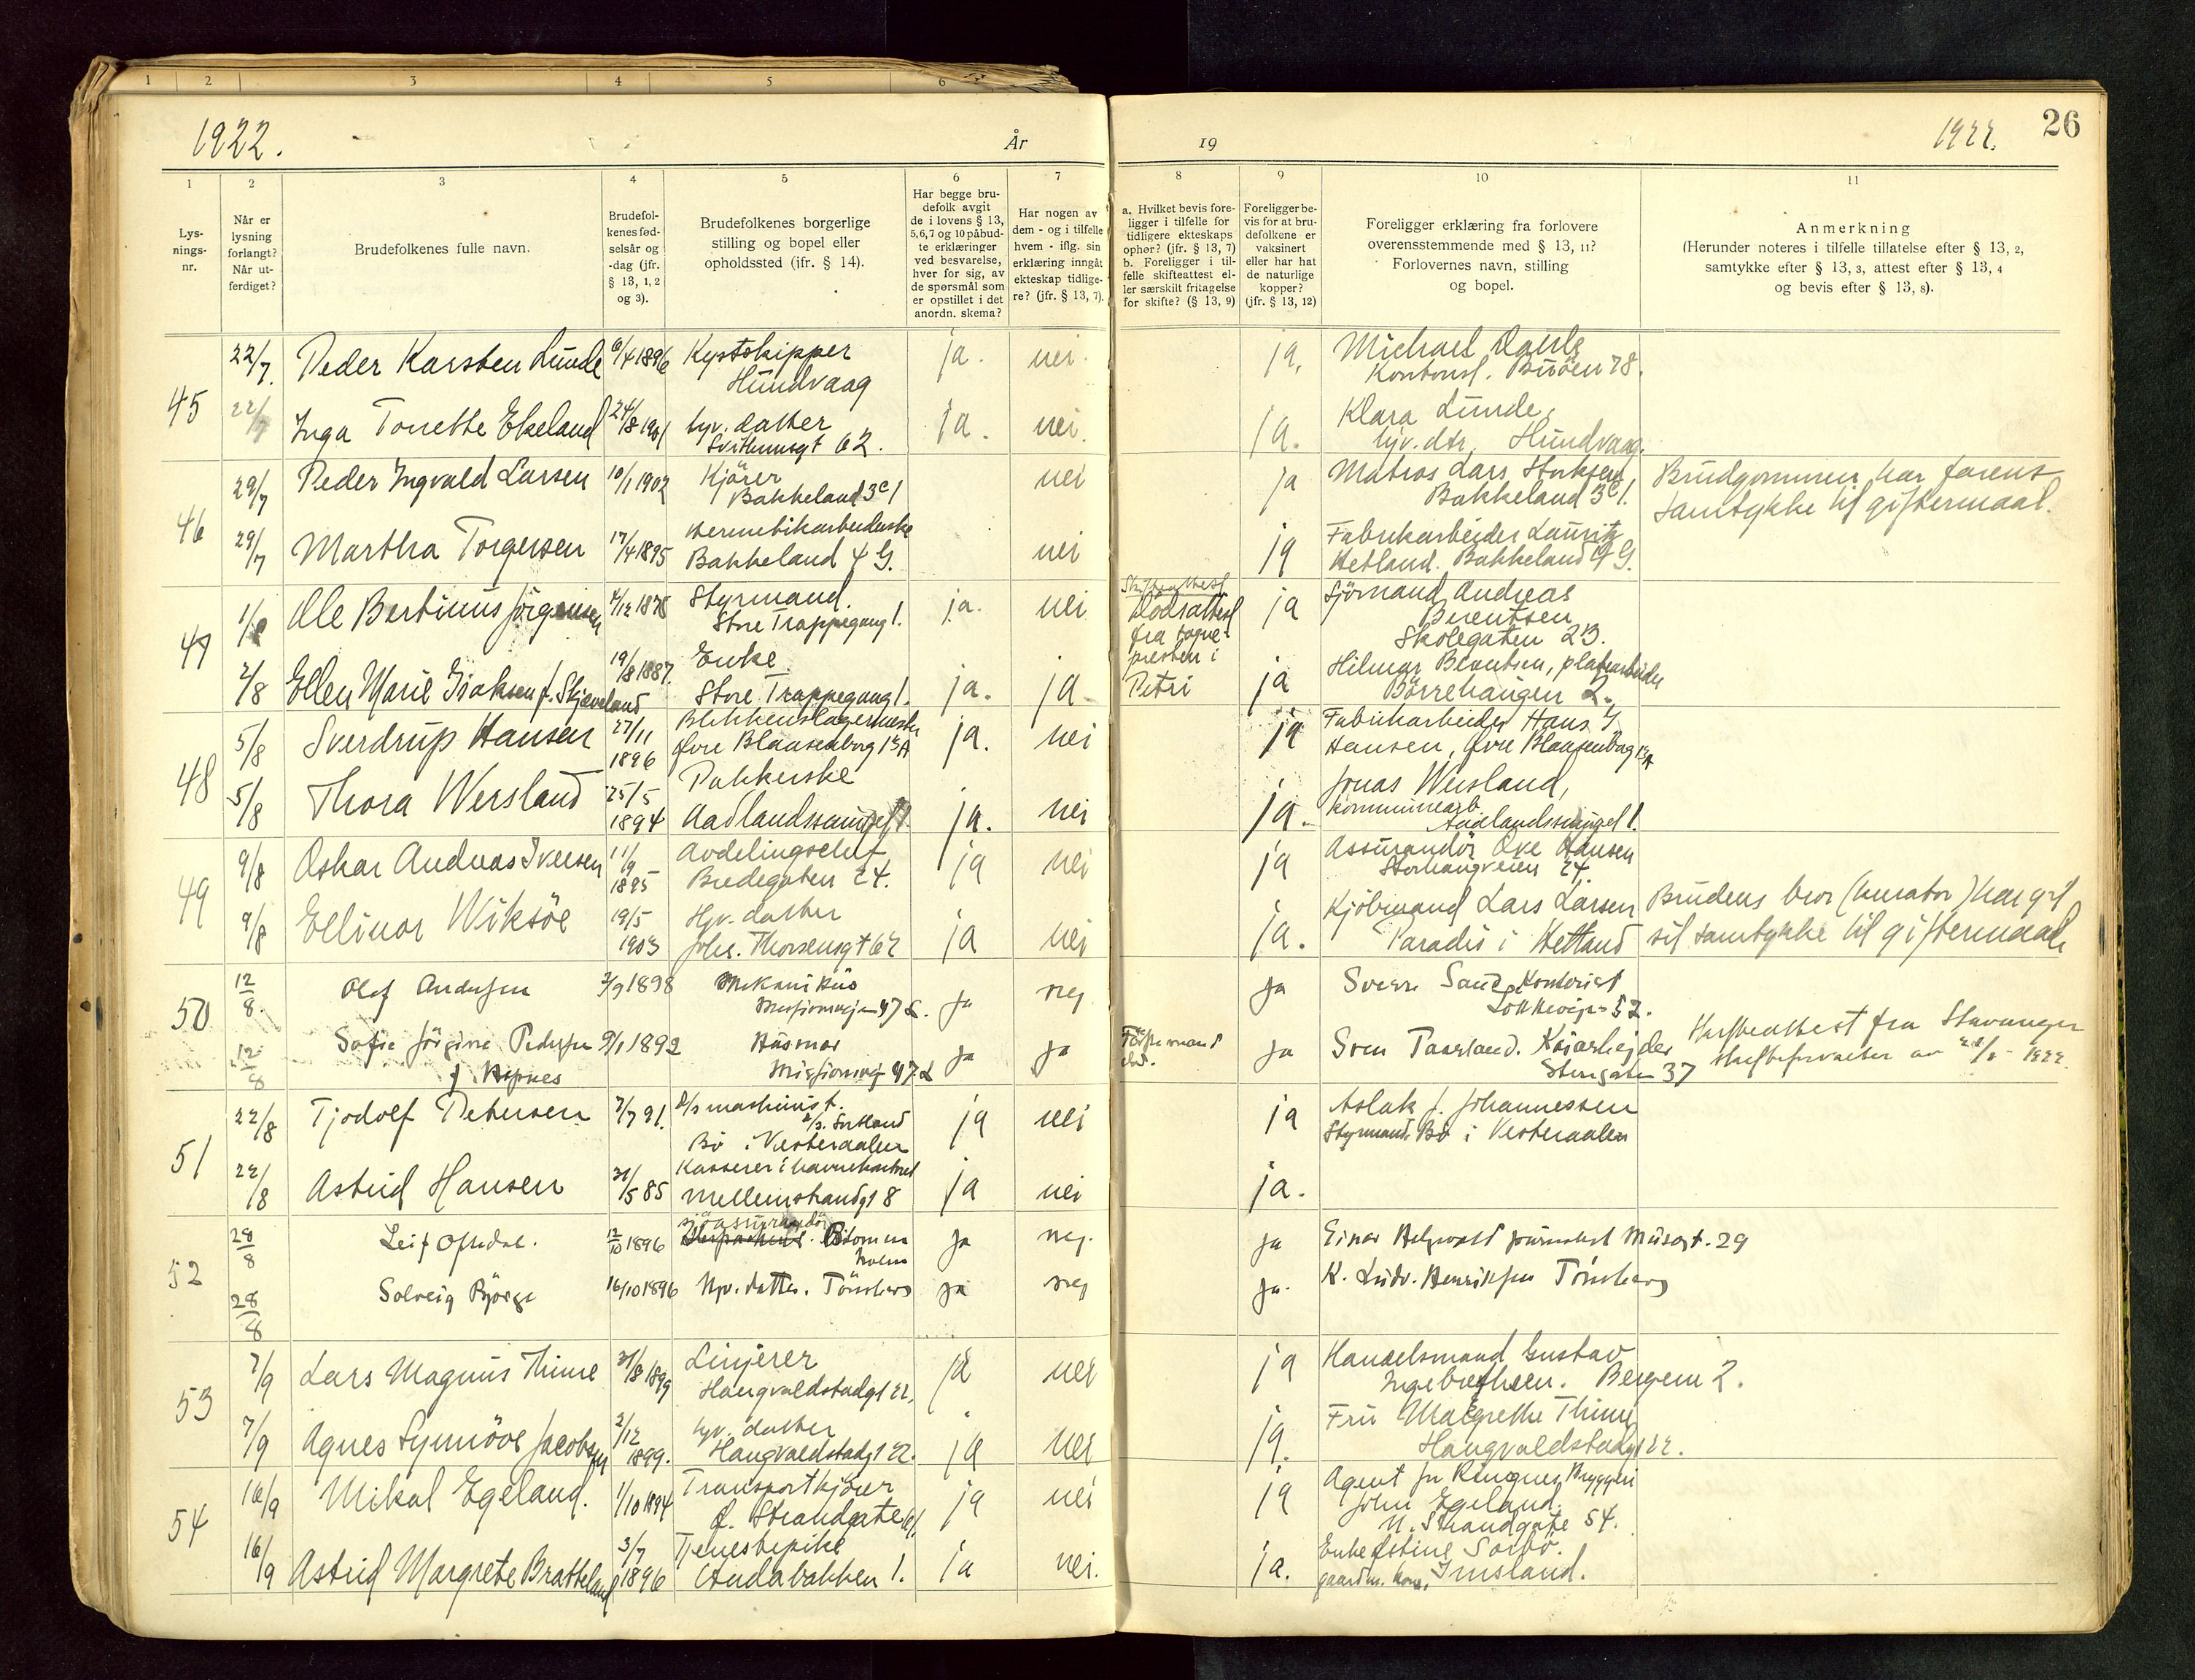 1 2 3 4 5 6
1922. År 19 1922. 26
1 2 3 4 5 6 7 8 9 10 11
Lys-
nings-
nr.
Når er
lysning
forlangt?
Når ut-
ferdiget?
Brudefolkenes fulle navn.
Brudefol-
kenes fød-
selsår og
-dag (jfr.
§ 13, 1, 2
og 3).
Brudefolkenes borgerlige
stilling og bopel eller
opholdssted (jfr. § 14).
Har begge bru-
defolk avgit
de i lovens § 13,
5,6,7 og 10 påbud-
te erklæringer
ved besvarelse,
hver for sig, av
de spørsmål som
er opstillet i det
anordn. skema?
Har nogen av
dem - og i tilfelle
hvem - iflg. sin
erklæring inngåt
ekteskap tidlige-
re? (jfr. § 13, 7).
a. Hvilket bevis fore-
ligger i tilfelle for
tidligere ekteskaps
ophør? (jfr. § 13, 7)
b. Foreligger i til-
felle skifteattest el-
ler særskilt fritagelse
for skifte? (§ 13, 9)
Foreligger be-
vis for at bru-
defolkene er
vaksinert
eller har hat
de naturlige
kopper?
(jfr. § 13, 12)
Foreligger erklæring fra forlovere
overensstemmende med § 13, 11?
Forlovernes navn, stilling
og bopel.
Anmerkning
(Herunder noteres i tilfelle tillatelse efter § 13, 2,
samtykke efter § 13, 3, attest efter § 13, 4
og bevis efter § 13, 8).
45
22/7. Peder Karsten Lunde 6/4 1896 Kystskipper ja. nei. ja. Michael
Hundvaag Kontorist. Buöen 78.
22/7 Inga Tonette Ekeland 24/8 1901 hjv. datter ja. nei. ja. Klara Lunde,
Svithunsgt 62. hjv. dtr, Hundvaag.
46
29/7 Peder Ingvald Larsen 10/1 1902 Kjörer nei ja Matros Lars Brudgommen har farens
Bakkeland 3c1 Bakkeland 3c1. samtykke til giftermaal.
29/7 Martha Torgersen 17/4 1895 Hermetikarbeiderske nei ja Fabrikarbeider Lauritz
Bakkeland 4 G. Hetland. Bakkeland 4 G.
47
Ole Bertinius Jörgensen 4/12 1878 Styrmand. ja. nei Skifteattest ja Sjömand Andreas
Store Trappegang 1. Dödsattest Berentsen
fra sogne- Skolegaten 23.
2/8 Ellen Marie Isaksen f. Skjæveland 19/8 1887. Enke ja. ja presten i ja Hilmar Berentsen, platearbeider
Store Trappegang 1. Petri Börrehaugen 2.
48
5/8 Sverdrup Hansen 27/11 Blikkenslagermester ja. nei ja Fabrikarbeider Hans J.
1896 Øvre Blaasenborg 13A Hansen, Øvre Blaasenborg 13A
5/8 Thora Wersland 25/5 Pakkerske ja. nei ja. Jonas Wersland,
1894 Aadlandssmuget 1 kommunearb
Aadlandssmuget 1.
49
9/8 Oskar Andreas Iversen 11/9 Avdelingschef ja nei ja Assurandör Ove Hansen
1895 Bredegaten 24. Storhaugveien 24.
9/8 Ellinor Wiksöe 19/5 Hjv. datter ja nei ja. Kjöbmand Lars Larsen Brudens bror (kurator) har git
1903 Johs. Thorsensgt 62 Paradis i Hetland sit samtykke til giftermaal.
50
12/8. Olaf Andersen 3/9 1898 Mekanikus ja nej ja Sverre Sand Kontorist
Missionsvejen 47 L. Lökkevejen 52.
12/8 Sofie Jörgine Pedersen 9/1 1892 Husmor ja ja ja Sven Taarland. Kaiarbejder Skifteattest fra Stavanger
f. Missionsvej 47 L Stengaten 37 1922.
51
22/8 Tjodolf Petersen 7/7 91. maskinist. ja nei ja Aslak J. Johannessen
Bö i Vesteraalen Styrmand. Bö i Vesteraalen
22/8 Astrid Hansen 31/5 85 Kasserer i havnekontoret ja nei ja.
Mellemstrandgt 8
52
28/8 Leif Oftedal. 12/10 1896 sjöassurandör ja nej. ja Einar journalist Musegt. 29
28/8 Solveig Björge 16/10 1896 Hjv. datter. Tönsberg ja nej ja. K. Ludv. Henriksen Tönsberg
53
7/9 Lars Magnus Thime 31/8 1899 Linjerer ja nei ja Handelsmand Gustav
Haugvaldstadgt 22. Ingebrethsen. Bergene 2.
7/9 Agnes Synnöve Jacobsen 2/12 hjv. datter ja nei ja. Fru Margrethe Thime
1899. Haugvaldstadgt 22. Haugvaldstadgt 22.
54
16/9 Mikal Egeland. 1/10 1894 Transportkjörer ja nei ja Agent for Ringnes Bryggeri
Ö. Strandgate John Egeland.
N. Strandgate 54.
16/9 Astrid Margrete Bratteland 3/7 Tjenestepike ja nei. ja. Enkefr
1896 Andabakken 1. Imsland.